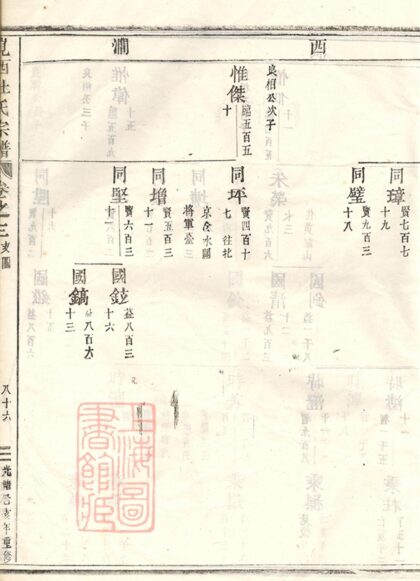 西澗
良相公次子
惟傑
五百五
十
同璋
賢七百七
十九
同璧
賢九百三
十八
同坪
賢四百十
七往北
京合水關
將軍臺三
同增
賢五百三
十一
同堅
賢六百三
十一
國鉉
益八百三
十六
國鎬
益八百六
十三
西杜氏宗譜
卷之三
支圖
八十六
光緒己亥年重修
上海圖書館藏